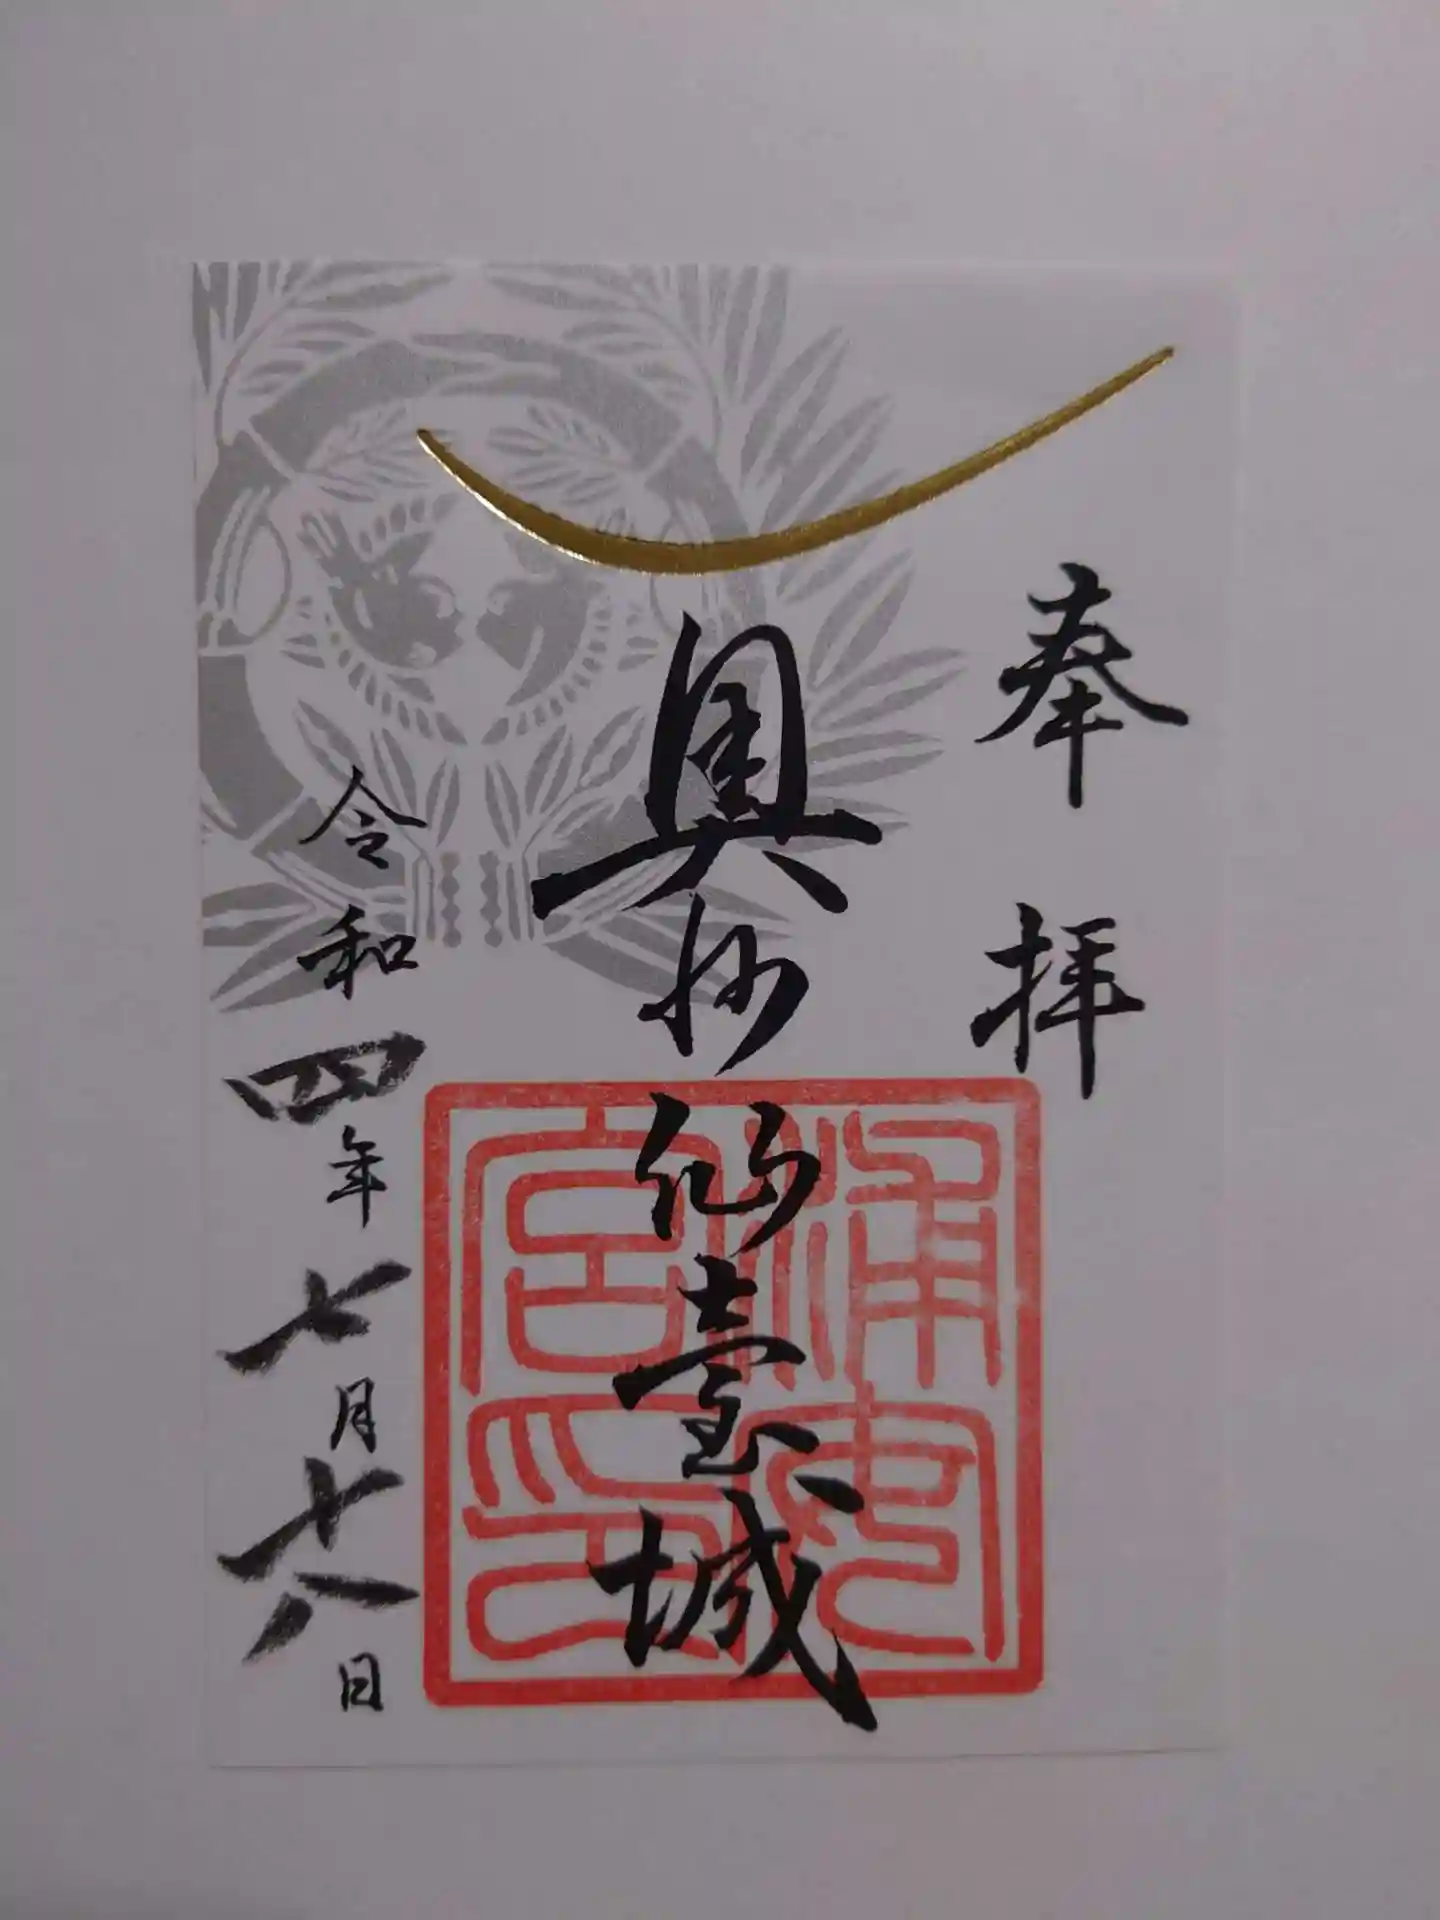 奉拝
奥州仙臺城
浦安宮印
令和四年七月十八日